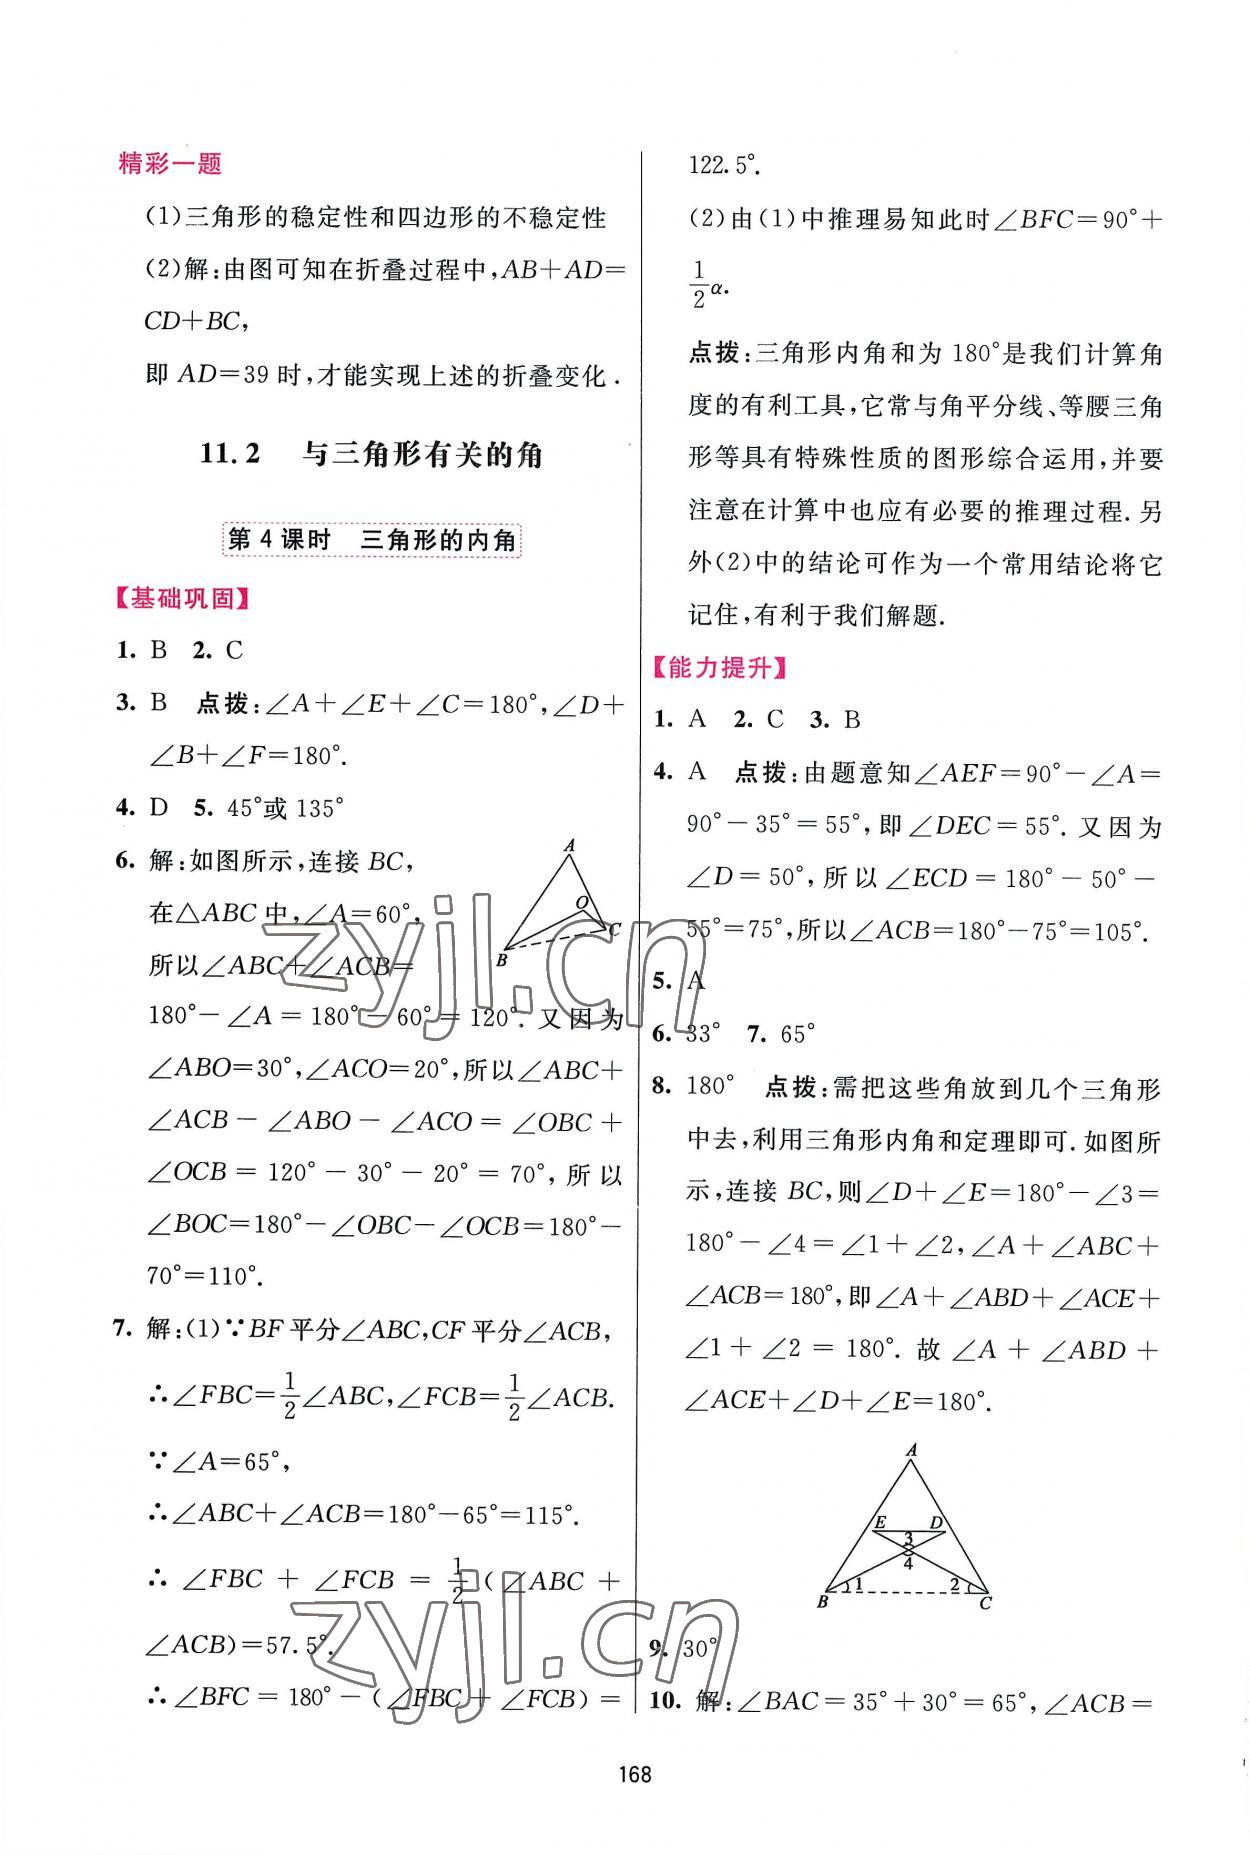 精彩一题
(1)三角形的稳定性和四边形的不稳定性
(2)解:由图可知在折叠过程中,AB+AD=
CD+BC,
即 AD=39 时,才能实现上述的折叠变化.
11.2 与三角形有关的角
第 4 课时 三角形的内角
【基础巩固】
1. B 2. C
3. B 点拨:∠A+∠E+∠C=180°,∠D+
∠B+∠F=180°.
4. D 5. 45°或 135°
6. 解:如图所示,连接 BC,
在△ABC 中,∠A=60°,
所以∠ABC+∠ACB=
180°-∠A=180°-60°=120°. 又因为
∠ABO=30°,∠ACO=20°,所以∠ABC+
∠ACB-∠ABO-∠ACO=∠OBC+
∠OCB=120°-30°-20°=70°,所以
∠BOC=180°-∠OBC-∠OCB=180°-
70°=110°.
A
O
C
B
7. 解:(1)∵BF 平分∠ABC,CF 平分∠ACB,
∴∠FBC=1/2∠ABC,∠FCB=1/2∠ACB.
∵∠A=65°,
∴∠ABC+∠ACB=180°-65°=115°.
∴∠FBC+∠FCB=1/2(∠ABC+
∠ACB)=57.5°.
∴∠BFC=180°-(∠FBC+∠FCB)=
122.5°.
(2)由(1)中推理易知此时∠BFC=90°+
1/2α.
点拨:三角形内角和为 180°是我们计算角
度的有利工具,它常与角平分线、等腰三角
形等具有特殊性质的图形综合运用,并要
注意在计算中也应有必要的推理过程. 另
外(2)中的结论可作为一个常用结论将它
记住,有利于我们解题.
【能力提升】
1. A 2. C 3. B
4. A 点拨:由题意知∠AEF=90°-∠A=
90°-35°=55°,即∠DEC=55°. 又因为
∠D=50°,所以∠ECD=180°-50°-
55°=75°,所以∠ACB=180°-75°=105°.
5. A
6. 33° 7. 65°
8. 180° 点拨:需把这些角放到几个三角形
中去,利用三角形内角和定理即可. 如图所
示,连接 BC,则∠D+∠E=180°-∠3=
180°-∠4=∠1+∠2,∠A+∠ABC+
∠ACB=180°,即∠A+∠ABD+∠ACE+
∠1+∠2=180°. 故∠A+∠ABD+
∠ACE+∠D+∠E=180°.
A
E D
3
4
1 2
B C
9. 30°
10. 解:∠BAC=35°+30°=65°,∠ACB=
168
zyjl.cn
zyjl.cn